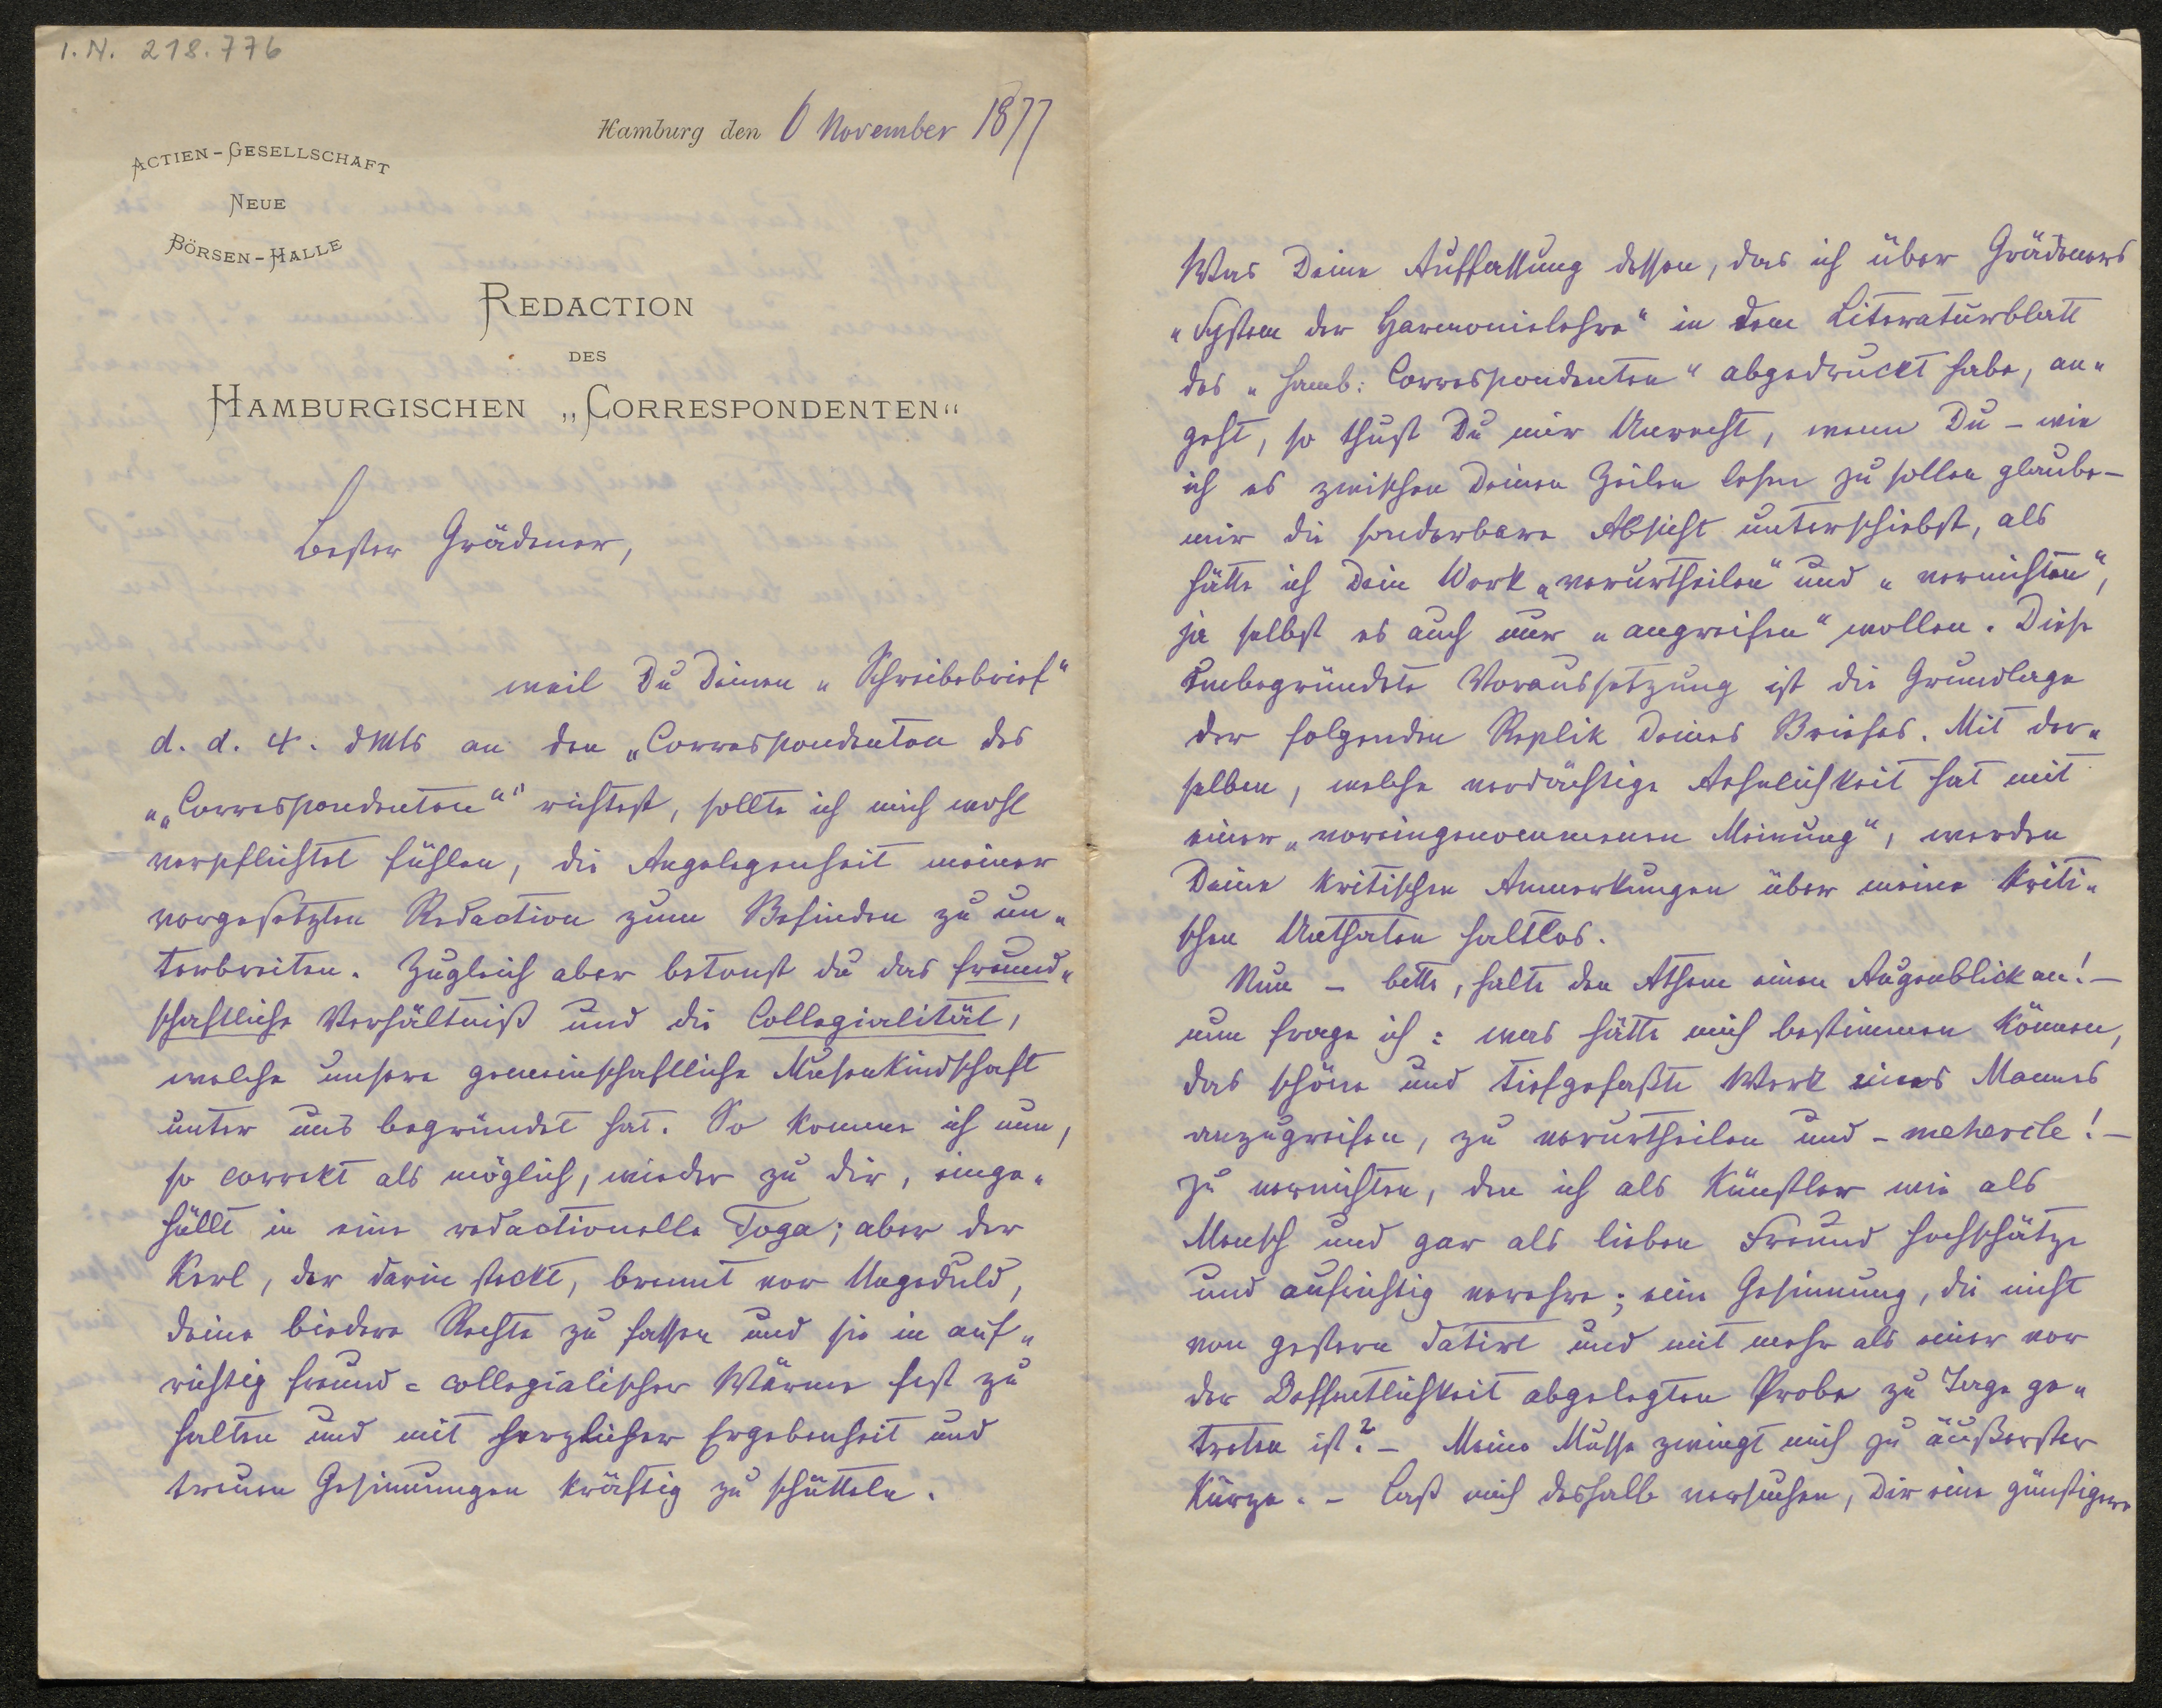 I. N. 218.776
Hamburg den 6 November 1877
ACTIEN-GESELLSCHAFT
NEUE
BÖRSEN-HALLE
REDACTION
DES
HAMBURGISCHEN „CORRESPONDENTEN“
Bester Grädener,
weil Du Deinen „Schreibebrief“
d. d. 4. dMts an den „Correspondenten des
„„Correspondenten““ richtest, sollte ich mich wohl
verpflichtet fühlen, die Angelegenheit meiner
vorgesetzten Redaction zum Befinden zu un-
terbreiten. Zugleich aber betonst du das freund-
schaftliche Verhältniß und die Collegialität,
welche unsere gemeinschaftliche Musenkindschaft
unter uns begründet hat. So komme ich nun,
so correkt als möglich, wieder zu dir, einge-
hüllt in eine redactionelle Toga; aber der
Kerl, der darin steckt, brennt vor Ungeduld,
deine biedere Rechte zu fassen und sie in auf-
richtig freund-collegialischer Wärme fest zu
halten und mit herzlicher Ergebenheit und
treuen Gesinnungen kräftig zu schütteln.
Was Deine Auffassung dessen, das ich über Grädeners
„System der Harmonielehre“ in dem Literaturblatt
des „Hamb: Correspondenten“ abgedruckt habe, an-
geht, so thust Du mir Unrecht, wenn Du – wie
ich es zwischen Deinen Zeilen lesen zu sollen glaube –
mir die sonderbare Absicht unterschiebst, als
hätte ich Dein Werk „verurtheilen“ und „vernichten“,
ja selbst es auch nur „angreifen“ wollen. Diese
unbegründete Voraussetzung ist die Grundlage
der folgenden Replik Deines Briefes. Mit der-
selben, welche verdächtige Aehnlichkeit hat mit
einer „voreingenommenen Meinung“, werden
Deine kritischen Anmerkungen über meine kriti-
schen Unthaten haltlos.
Nun – bitte, halte den Athem einen Augenblick an! –
nun frage ich: was hätte mich bestimmen können,
das schöne und tiefgefaßte Werk eines Mannes
anzugreifen, zu verurtheilen und – mehercle! –
zu vernichten, den ich als Künstler wie als
Mensch und gar als lieben Freund hochschätze
und aufrichtig verehre; eine Gesinnung, die nicht
von gestern datirt und mit mehr als einer vor
der Oeffentlichkeit abgelegten Probe zu Tage ge-
treten ist? – Meine Musse zwingt mich zu äußerster
Kürze. – Laß mich deshalb versuchen, Dir eine günstigere